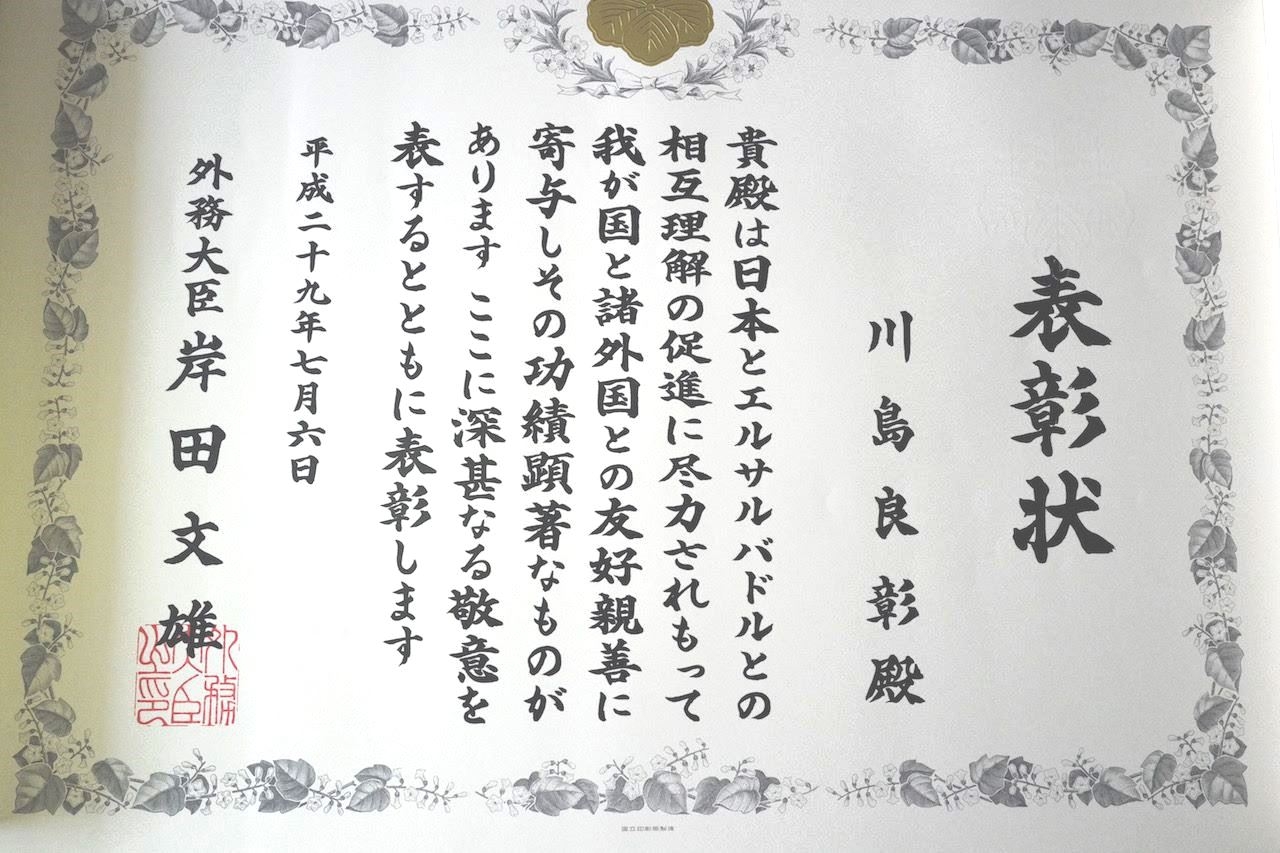 表彰状
川島良彰殿
貴殿は日本とエルサルバドルとの
相互理解の促進に尽力されもって
我が国と諸外国との友好親善に
寄与しその功績顕著なものが
あります ここに深甚なる敬意を
表するとともに表彰します
平成二十九年七月六日
外務大臣 岸田文雄
外務
大臣
公印
国立印刷局製造